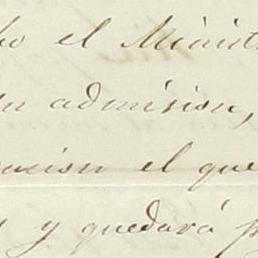 el Minist
su admision,
acion el que
y quedará